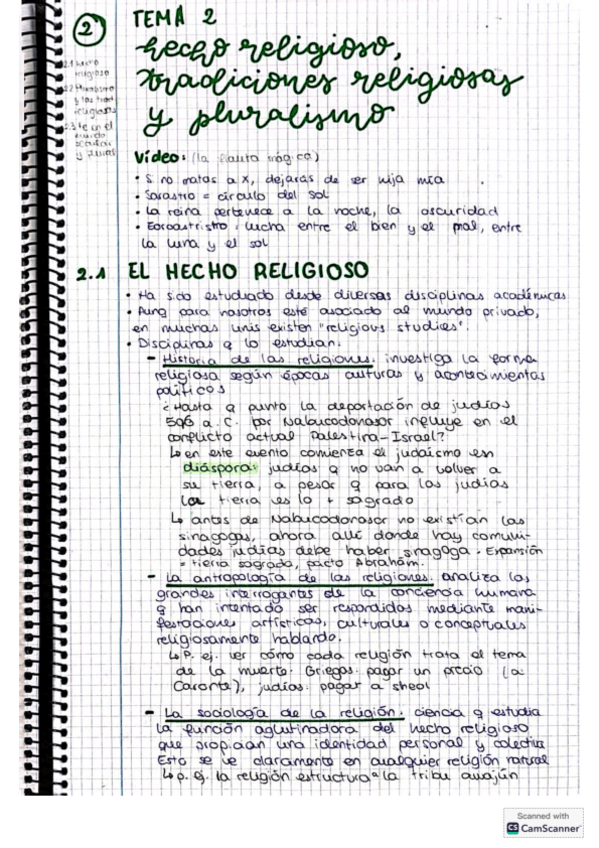 2
TEMA 2
hecho religioso,
tradiciones religiosas
y pluralismo
2.1 hecho
religioso
2.2
y las trad
religiosas
2.3 fe en el
mundo
secular
y plural
Vídeo: (la flauta mágica)
• Si no matas a x, dejarás de ser hija mía
• Sarastro = círculo del sol
• La reina pertenece a la noche, la oscuridad
• lucha entre el bien y el mal, entre
la luna y el sol
2.1 EL HECHO RELIGIOSO
• Ha sido estudiado desde diversas disciplinas académicas
• Aunq para nosotros esté asociado al mundo privado,
en muchas unis existen "religious studies".
• Disciplinas q lo estudian:
- Historia de las religiones: investiga la forma
religiosa según épocas culturas y acontecimientos
políticos
¿Hasta q punto la deportación de judíos
596 a.C. por Nabucodonosor influye en el
conflicto actual Palestina-Israel?
↳ en este evento comienza el judaísmo en
diáspora: judíos q no van a volver a
su tierra, a pesar q para los judíos
la tierra es lo + sagrado
↳ antes de Nabucodonosor no existían las
sinagogas, ahora allí donde hay comuni-
dades judías debe haber sinagoga. Expansión
= tierra sagrada, pacto Abraham.
- La antropología de las religiones: analiza los
grandes interrogantes de la conciencia humana
q han intentado ser respondidos mediante mani-
festaciones artísticas, culturales o conceptuales
religiosamente hablando.
↳ P. ej. ver cómo cada religión trata el tema
de la muerte. Griegos: pagar un precio (a
Caronte), judíos: pagar a sheol
- La sociología de la religión: ciencia q estudia
la función aglutinadora del hecho religioso
que propician una identidad personal y colectiva
Esto se ve claramente en cualquier religión natural
↳ p. ej. la religión estructura a la tribu awajún
Scanned with
CS CamScanner